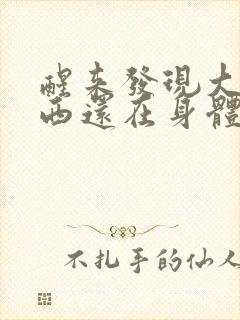 醒來發現大
西還在身體
不扎手的仙人